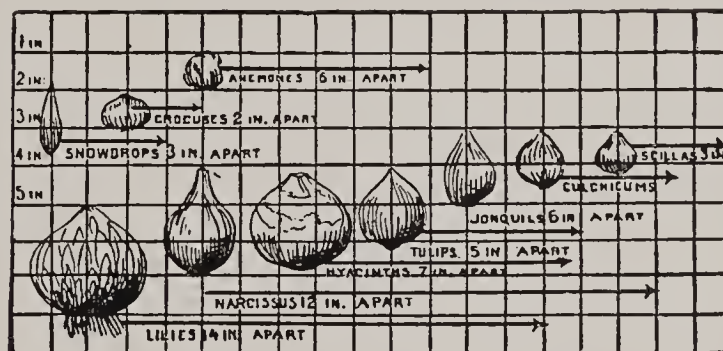 1 IN
2 IN.
ANEMONES 6 IN. APART
3 IN.
CROCUSES 2 IN. APART
4 IN.
SNOWDROPS 3 IN. APART
SCILLAS 3 IN
COLCHICUMS
5 IN
JONQUILS 6 IN APART
TULIPS. 5 IN APART
HYACINTHS 7 IN. APART
NARCISSUS 12 IN. APART
LILIES 14 IN. APART